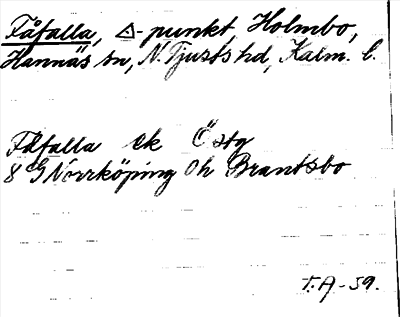 Fåfalla, △-punkt, Holmbo,
Hannäs sn, N. Tjusts hd, Kalm. l.
Fåfalla ek Östg
8 G Norrköping 0h Brantsbo
T.A-59.